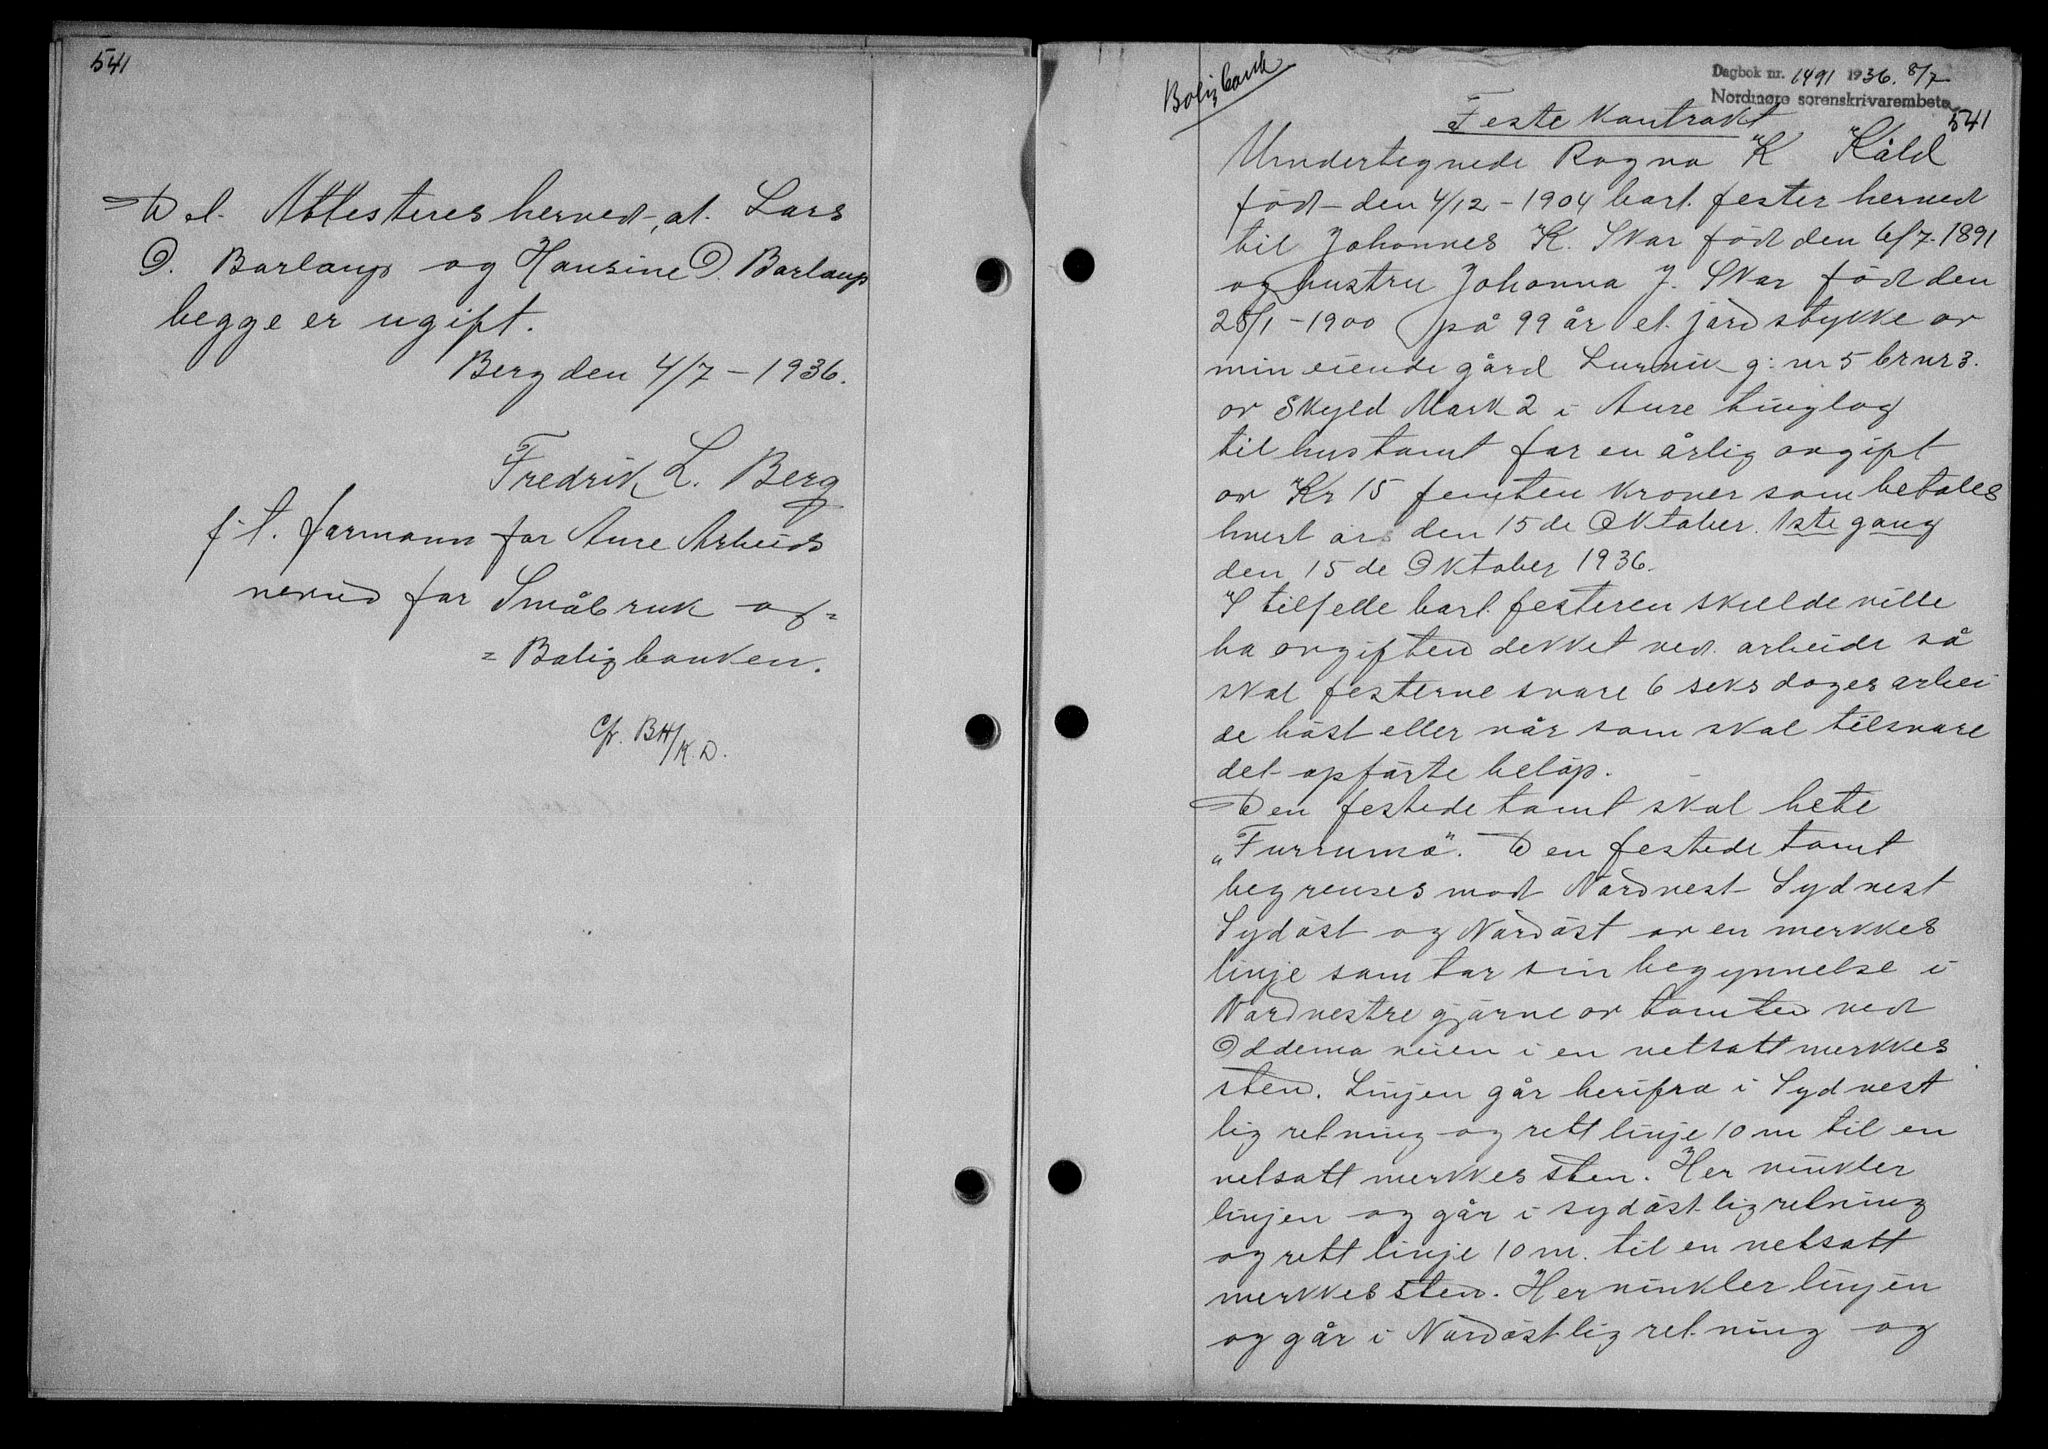 541
Det Attesteres herved, at Lars
O. Barlaup og Hansine O. Barlaup
begge er ugift.
Berg den 4/7 - 1936.
Fredrik L. Berg
f.t. formann for Aure Arbeids
nevnd for Småbruk og =
= Boligbanken.
Cfr. BH/K.D.
Boligbank
Dagbok nr. 1491 1936. 8/7
Nordmøre sorenskrivarembete
541
Feste Kontrakt
Undertegnede Ragna K Kåld
født den 4/12 - 1904 bort fester herved
til Johannes K. Skar født den 6/7-1891
og hustru Johanna J. Skar født den
28/1 - 1900 på 99 år et jordstykke av
min eiende gård Lurvik g: nr 5 br nr 3.
av Skyld Mark 2 i Aure tinglag
til hustomt for en årlig avgift
av Kr 15 femten kroner som betales
hvert års den 15de Oktober. 1ste gang
den 15de Oktober 1936.
I tilfelle bort festeren skulde ville
ha avgiften dekket ved arbeide så
skal festerne svare 6 seks dager arbei
de høst eller vår som skal tilsvare
det opførte beløp.
Den festede tomt skal hete
"Furrumo". Den festede tomt
begrenses mot Nordvest Sydvest
Sydøst og Nordøst av en merkkes
linje som tar sin begynnelse i
Nordvestre hjørne av tomten ved
Oddema veien i en netsatt merkkes
sten. Linjen går herifra i Sydvest
lig retning og rett linje 10 m til en
netsatt merkkes sten. Her vinkler
linjen og går i sydøstlig retning
og rett linje 10 m. til en netsatt
merkkes sten. Her vinkler linjen
og går i Nordøstlig retning og